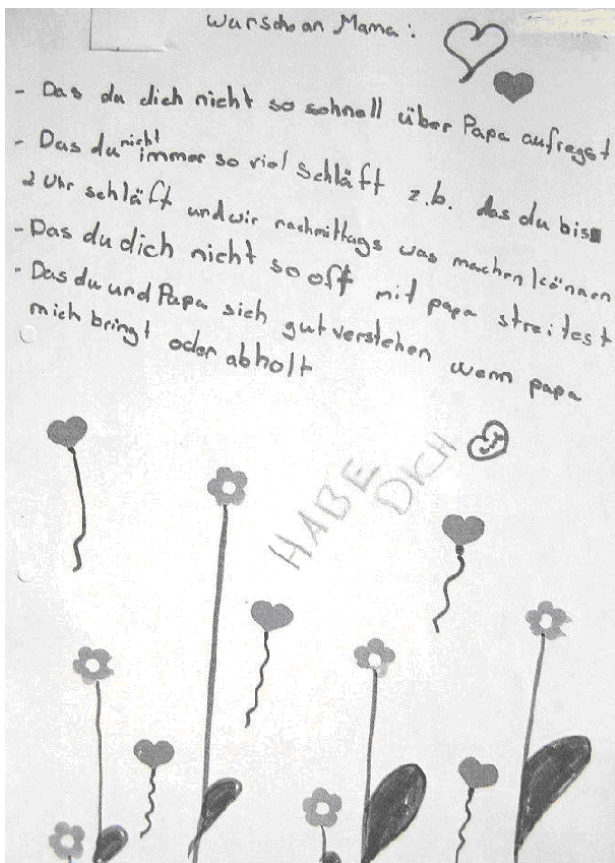 Wunsch an Mama:
- Das du dich nicht so schnell über Papa aufregst
- Das du nicht immer so viel schläft z.b. das du bis
2 Uhr schläft und wir nachmittags was machen können
- Das du dich nicht so oft mit papa streitest
- Das du und Papa sich gut verstehen wenn papa
mich bringt oder abholt
HABE
DICH